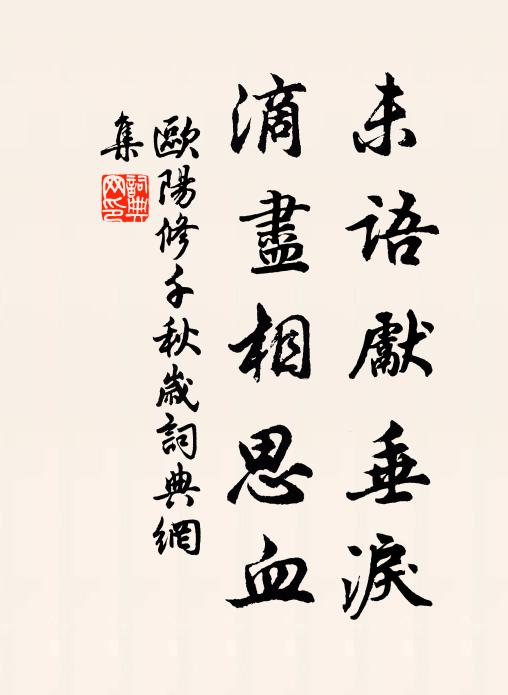 未語獻垂淚
滴盡相思血
歐陽修千秋歲詞典網
集
詞典網印